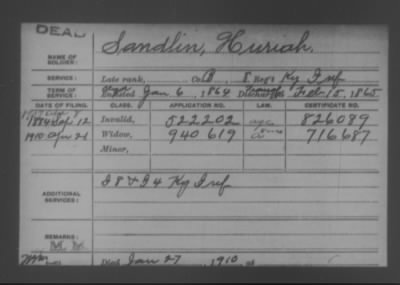 DEAD
NAME OF SOLDIER: Sandlin, Huriah.
SERVICE: Late rank, Co. B, 8 Reg't Ky Inf
TERM OF SERVICE: Enlisted Jan 6, 1864 Discharged Feb 15, 1865
DATE OF FILING. CLASS. APPLICATION NO. LAW. CERTIFICATE NO.
1884 12 Invalid, 522202 826089
1910 Widow, 940619 716687
Minor,
ADDITIONAL SERVICES: I 8 & I 4 Ky Inf
REMARKS:
Died Jan 27, 1910, at